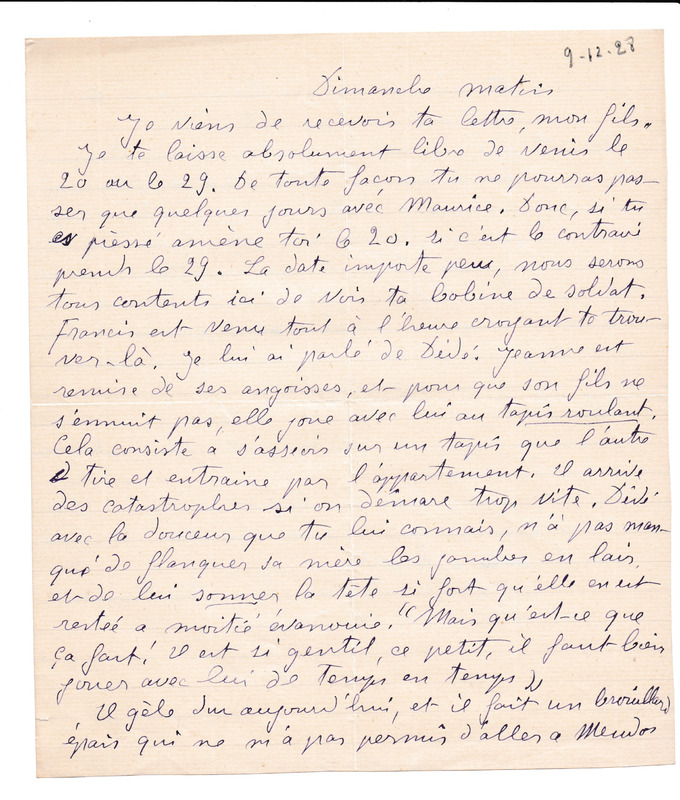 9-12-28
Dimanche matin
Je viens de recevoir ta lettre, mon fils.
Je te laisse absolument libre de venir le
20 ou le 29. De toute façon tu ne pourras pas-
ser que quelques jours avec Maurice. Donc, si tu
es pressé amène toi le 20. Si c'est le contraire
prends le 29. La date importe peu, nous serons
tous contents ici de voir ta bobine de soldat.
Francis est venu tout à l'heure croyant te trou-
ver-là. Je lui ai parlé de Dédé. Jeanne est
remise de ses angoisses, et pour que son fils ne
s'ennuit pas, elle joue avec lui au tapis roulant.
Cela consiste a s'asseoir sur un tapis que l'autre
tire et entraine par l'appartement. Il arrive
des catastrophes si on démare trop vite. Dédé
avec la douceur que tu lui connais, n'à pas man-
qué de flanquer sa mère les jambes en l'air,
et de lui sonner la tête si fort qu'elle en est
restée a moitié évanouie. "Mais qu'est-ce que
ça fait! Il est si gentil, ce petit, il faut bien
jouer avec lui de temps en temps"
Il gèle dur aujourd'hui, et il fait un brouillard
épais qui ne m'à pas permis d'aller a Meudon